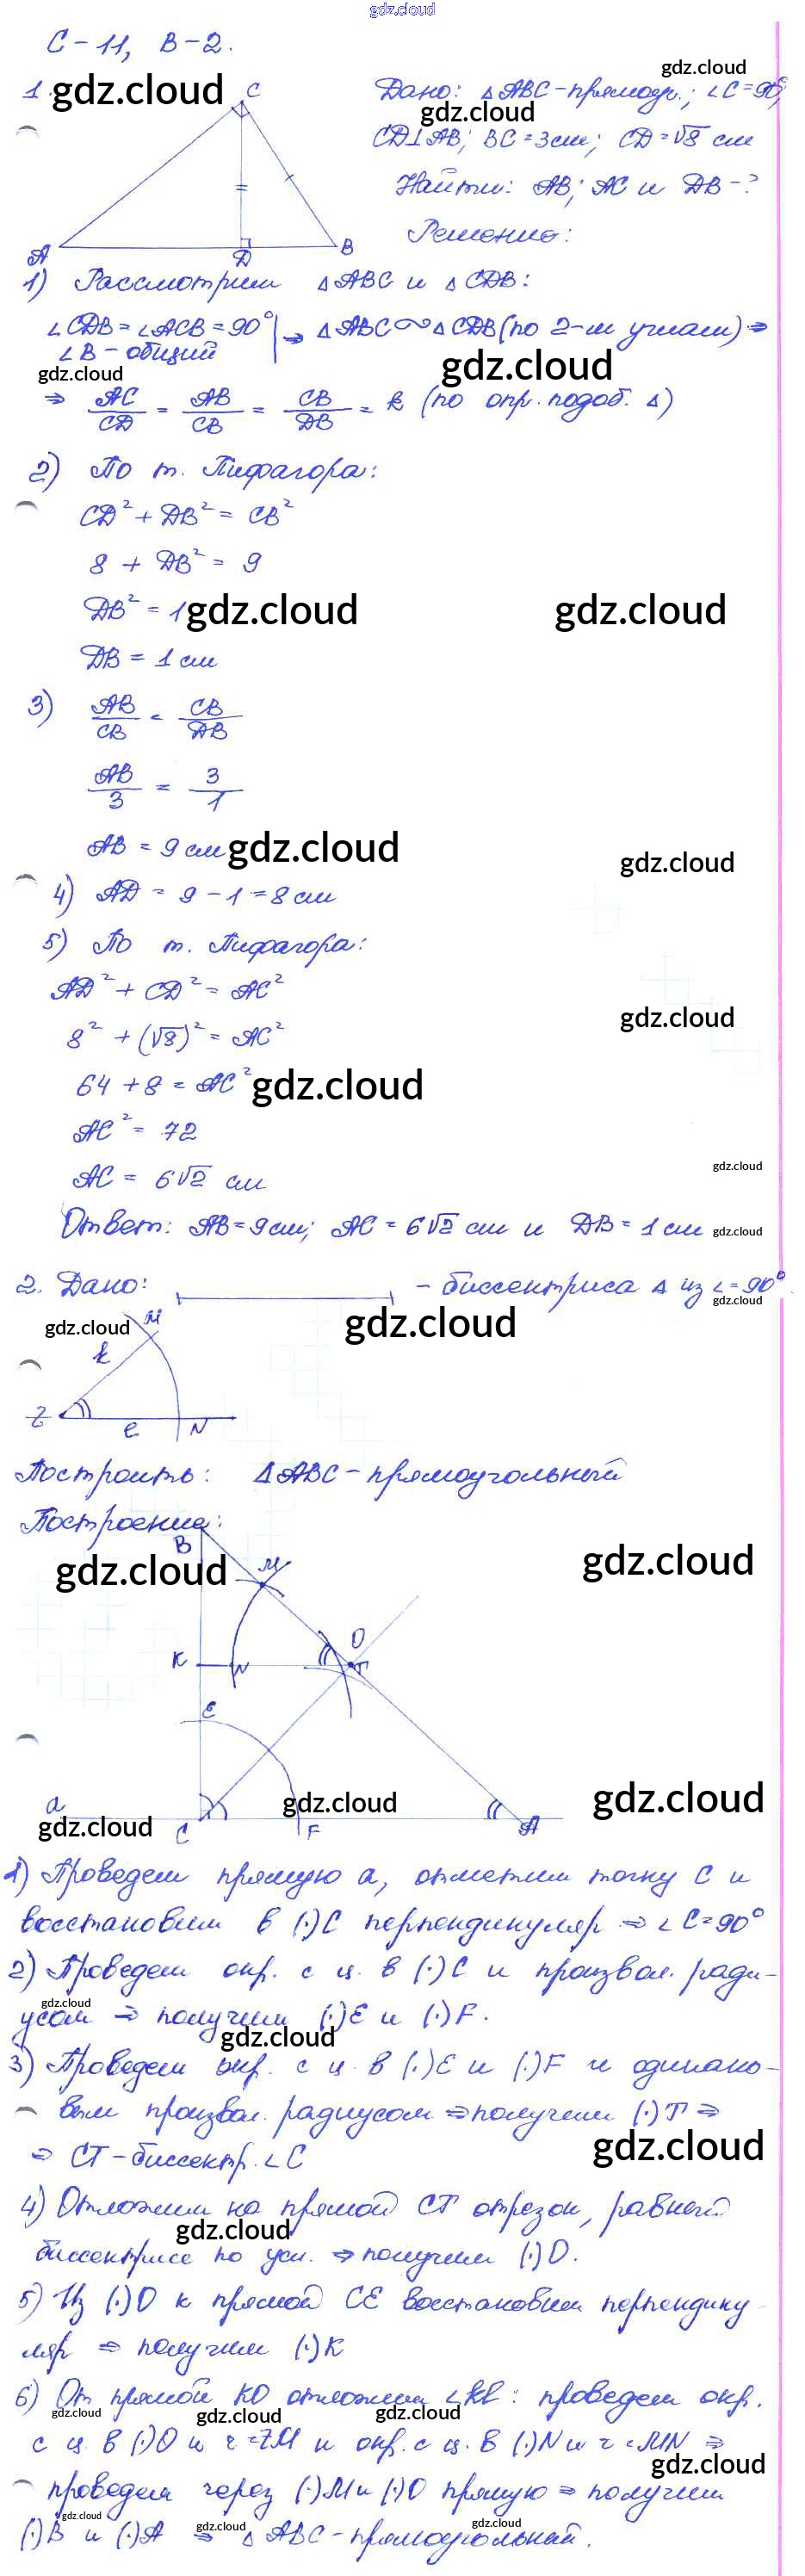 gdz.cloud
С-11, В-2.
gdz.cloud
1. gdz.cloud
C
Дано: △ABC-прямоуг.; ∠C=90°;
gdz.cloud
CD⊥AB; BC=3см; CD=√8 см
Найти: AB; AC и DB-?
Решение:
A D B
1) Рассмотрим △ABC и △CDB:
∠CDB=∠ACB=90° | ⇒ △ABC∾△CDB (по 2-м углам) ⇒
∠B-общий
gdz.cloud gdz.cloud
⇒ AC/CD = AB/CB = CB/DB = k (по опр. подоб. △)
2) По т. Пифагора:
CD²+DB²=CB²
8+DB²=9
DB²=1 gdz.cloud gdz.cloud
DB=1см
3) AB/CB = CB/DB
AB/3 = 3/1
AB=9см gdz.cloud gdz.cloud
4) AD=9-1=8см
5) По т. Пифагора:
AD²+CD²=AC²
8²+(√8)²=AC² gdz.cloud
64+8=AC² gdz.cloud
AC²=72
gdz.cloud
AC=6√2 см
Ответ: AB=9см; AC=6√2 см и DB=1см gdz.cloud
2. Дано: - биссектриса △ из ∠=90°
gdz.cloud
gdz.cloud M gdz.cloud
k
Z ℓ N
Построить: △ABC-прямоугольный
Построение:
B
gdz.cloud M gdz.cloud
O
K N T
E
a gdz.cloud gdz.cloud
gdz.cloud C F A
1) Проведем прямую a, отметим точку C и
восстановим в (·)C перпендикуляр ⇒ ∠C=90°
2) Проведем окр. с ц. в (·)C и произвол. ради-
gdz.cloud
усом ⇒ получим (·)E и (·)F.
gdz.cloud
3) Проведем окр. с ц. в (·)E и (·)F и одинако-
вым произвол. радиусом ⇒ получим (·)T ⇒
⇒ CT-биссектр. ∠C gdz.cloud
4) Отложим на прямой CT отрезок, равный
gdz.cloud
биссектрисе по усл. ⇒ получим (·)O.
5) Из (·)O к прямой CE восстановим перпендику-
ляр ⇒ получим (·)K
6) От прямой KO отложим ∠kℓ: проведем окр.
gdz.cloud gdz.cloud gdz.cloud
с ц. в (·)O и r=ZM и окр. с ц. в (·)N и r=MN ⇒
gdz.cloud
проведем через (·)M и (·)O прямую ⇒ получим
gdz.cloud gdz.cloud gdz.cloud
(·)B и (·)A ⇒ △ABC-прямоугольный.